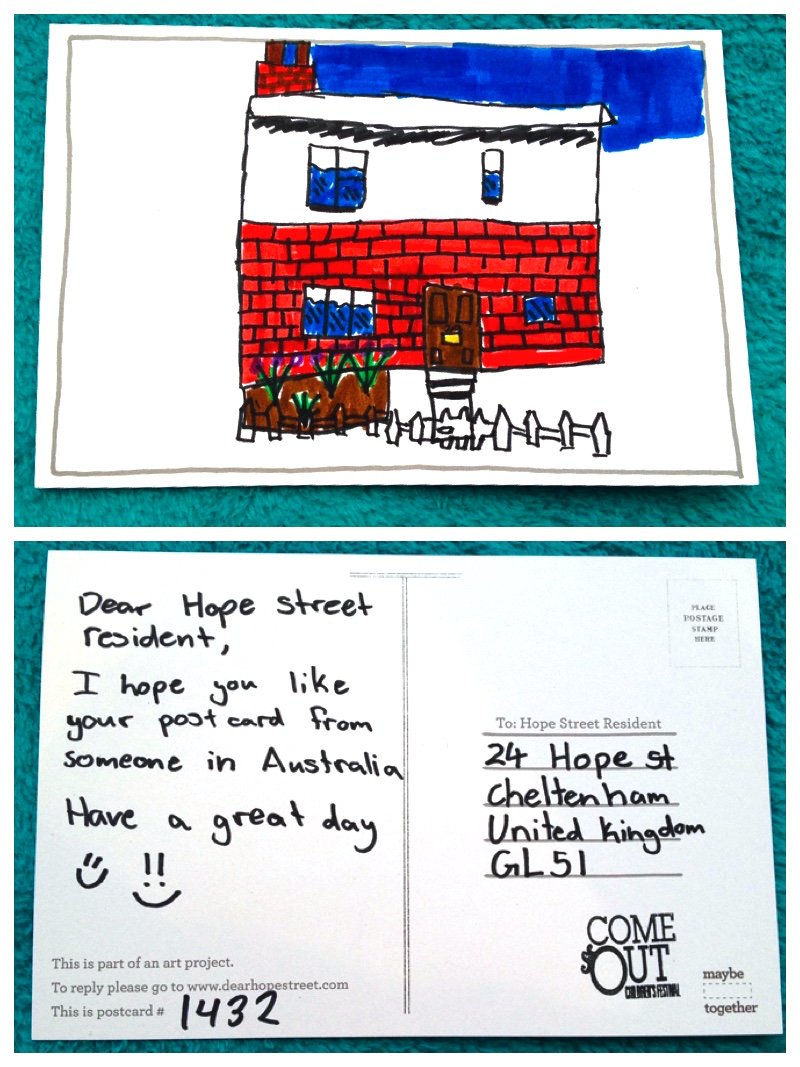 Dear Hope street
resident,
I hope you like
your post card from
someone in Australia
Have a great day
This is part of an art project.
To reply please go to www.dearhopestreet.com
This is postcard # 1432
PLACE
POSTAGE
STAMP
HERE
To: Hope Street Resident
24 Hope st
Cheltenham
United kingdom
GL51
COME
OUT
CHILDREN'S FESTIVAL
maybe
together